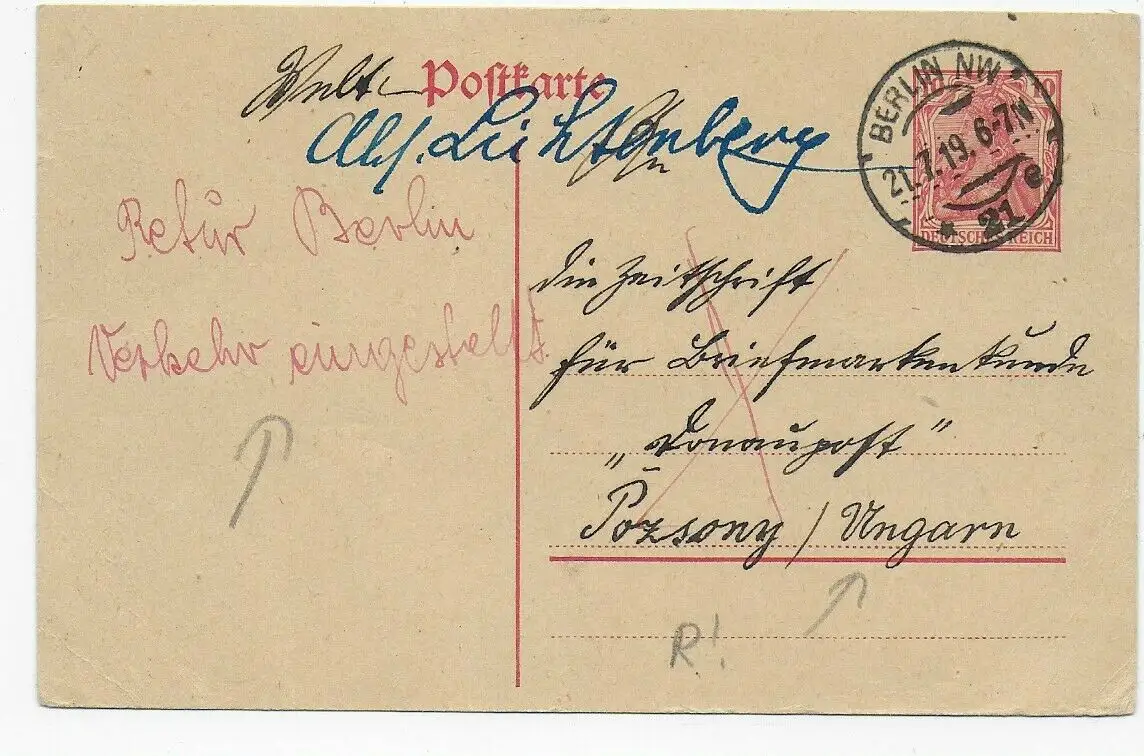 Welt-Postkarte
Abs. Lichtenberg
An
BERLIN NW
21.7.19. 6-7N
e
* 21
10
DEUTSCHES REICH
Retur Berlin
Verkehr eingestellt
die Zeitschrift
für Briefmarkenkunde
„Donaupost"
Pozsony / Ungarn
R!